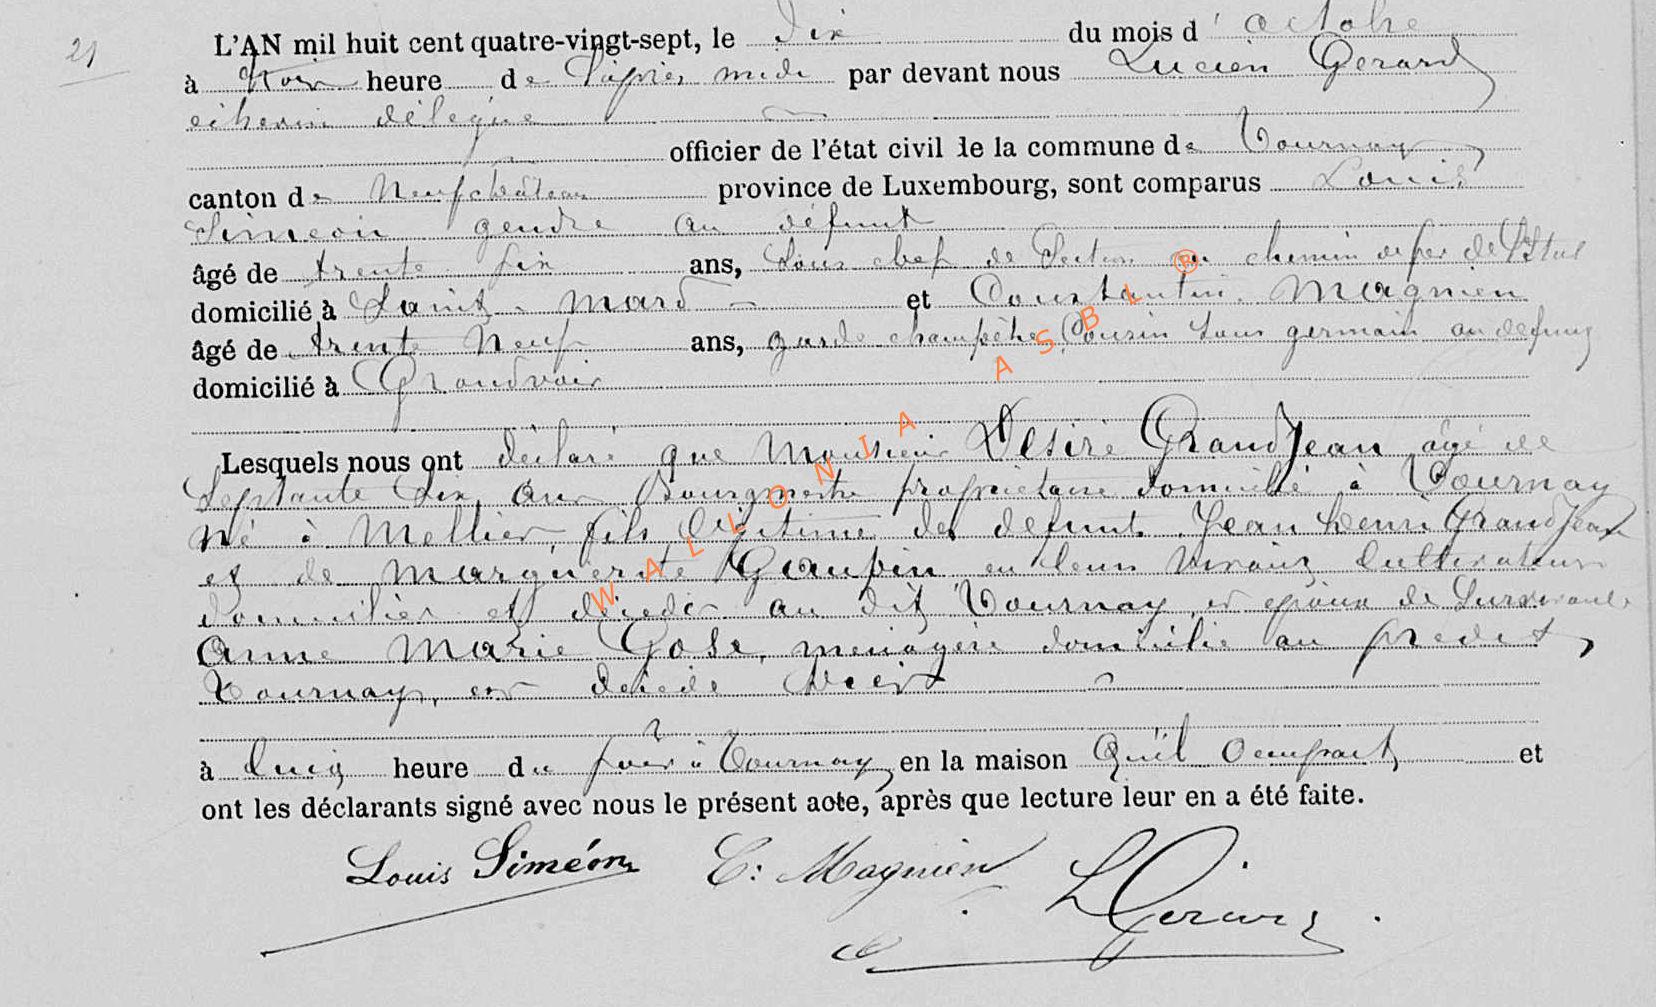 21
L'AN mil huit cent quatre-vingt-sept, le dix du mois d'octobre
à trois heure de l'après midi par devant nous Lucien Gerard
échevin délégué
officier de l'état civil de la commune de Tournay
canton de Neufchâteau province de Luxembourg, sont comparus Louis
Siméon gendre au défunt
âgé de trente six ans, Sous chef de Section au chemin de fer de l'Etat
domicilié à Saint-Mard et Constantin Magnien
âgé de trente neuf ans, garde champêtre Cousin sous germain au defunt
domicilié à Grandvoir
Lesquels nous ont déclaré que Monsieur Désiré Grandjean âgé de
Septante six ans Bourgmestre propriétaire domicilié à Tournay
né à Mellier, fils légitime des defunts Jean henri Grandjean
et de Marguerite Gaupin en leurs vivants cultivateurs
domiciliés et décédés au dit Tournay, et epoux de Survivante
Anne Marie Gose, menagère domicilie au predit
Tournay, est décédé hier
à cinq heure du soir à Tournay, en la maison Qu'il Occupait et
ont les déclarants signé avec nous le présent acte, après que lecture leur en a été faite.
Louis Siméon C: Magnien L Gérard
WALLONIA ASBL ®